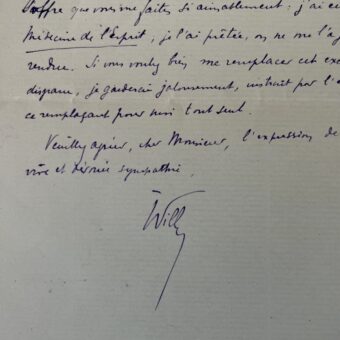 l'offre que vous me faites si aimablement : j'ai eu
Médecine de l'Esprit, je l'ai prêtée, on ne me l'a
rendue. Si vous voulez bien me remplacer cet exe
disparu, je garderai jalousement, instruit par l'e
ce remplaçant pour moi tout seul.
Veuillez agréer, cher Monsieur, l'expression de
vive et dévouée sympathie.
Willy